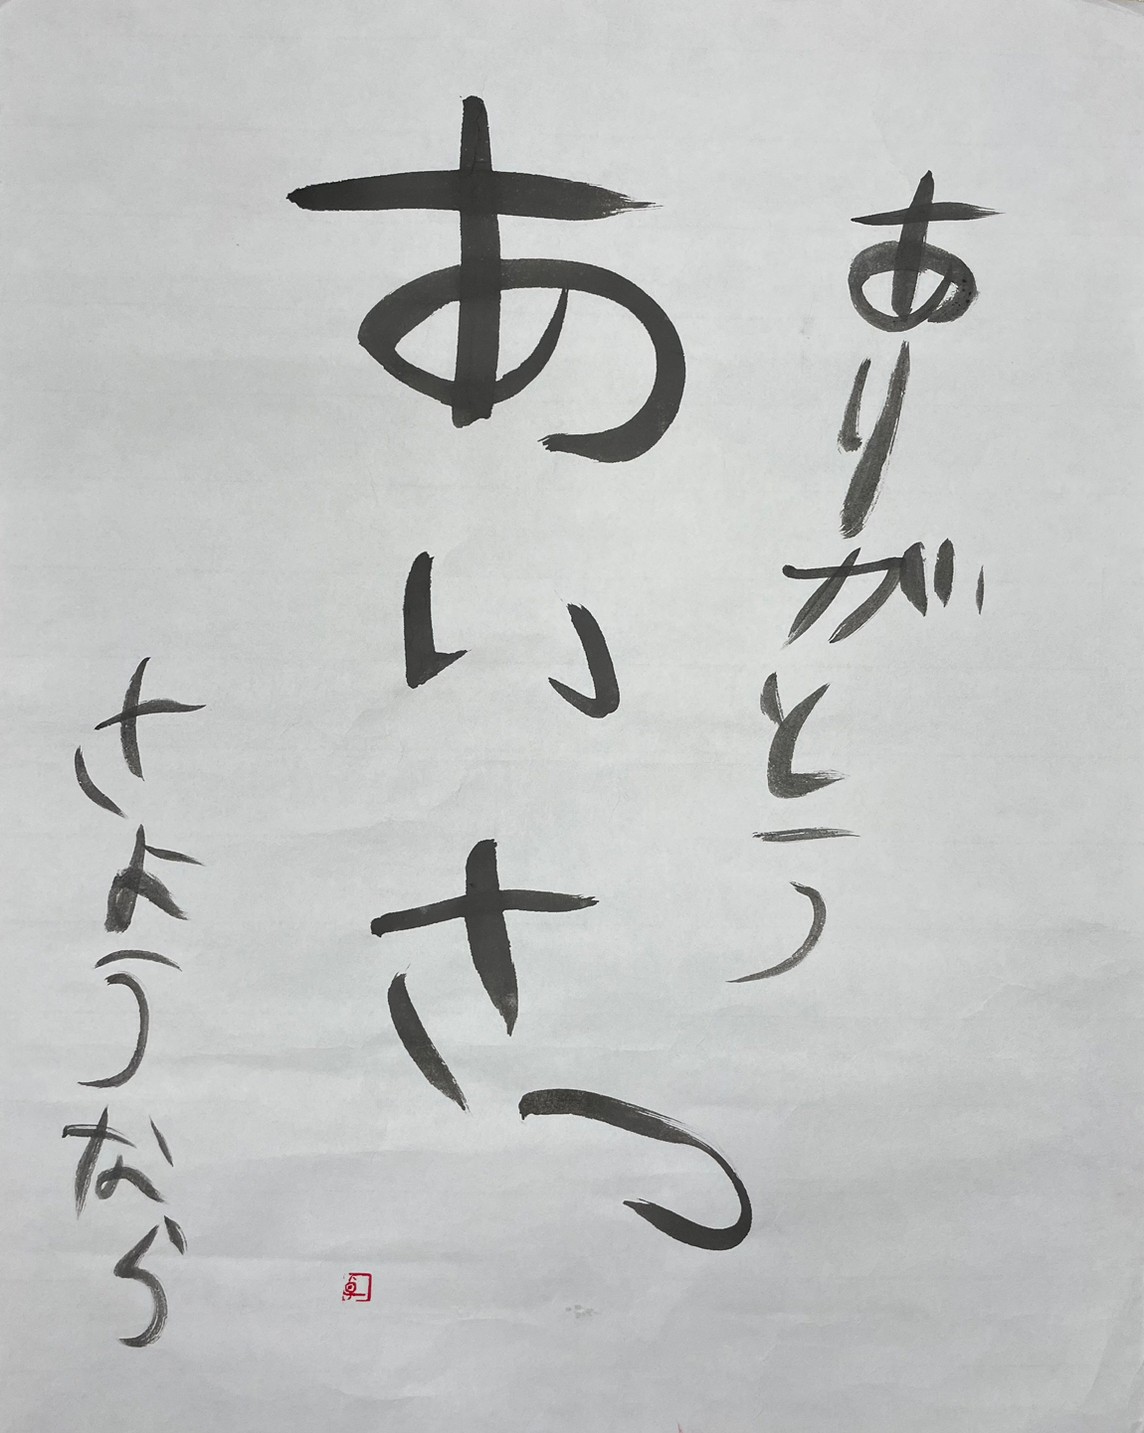 ありがとう
あいさつ
さようなら